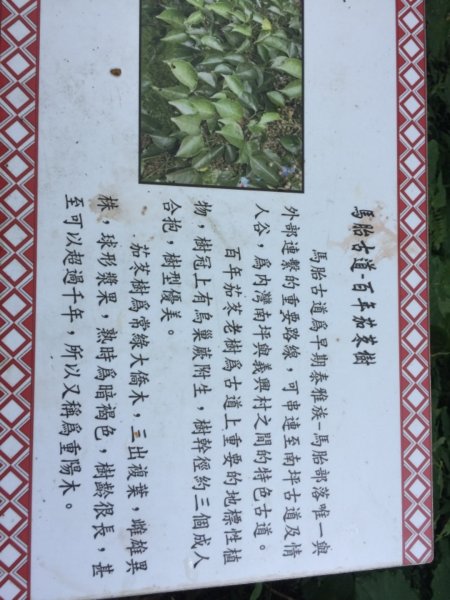 馬胎古道-百年茄苳樹
馬胎古道為早期泰雅族-馬胎部落唯一與
外部連繫的重要路線，可串連至南坪古道及情
人谷，為內灣南坪與義興村之間的特色古道。
百年茄苳老樹為古道上重要的地標性植
物，樹冠上有鳥巢蕨附生，樹幹徑約三個成人
合抱，樹型優美。
茄苳樹為常綠大僑木，三出複葉，雌雄異
株，球形漿果，熟時為暗褐色，樹齡很長，甚
至可以超過千年，所以又稱為重陽木。